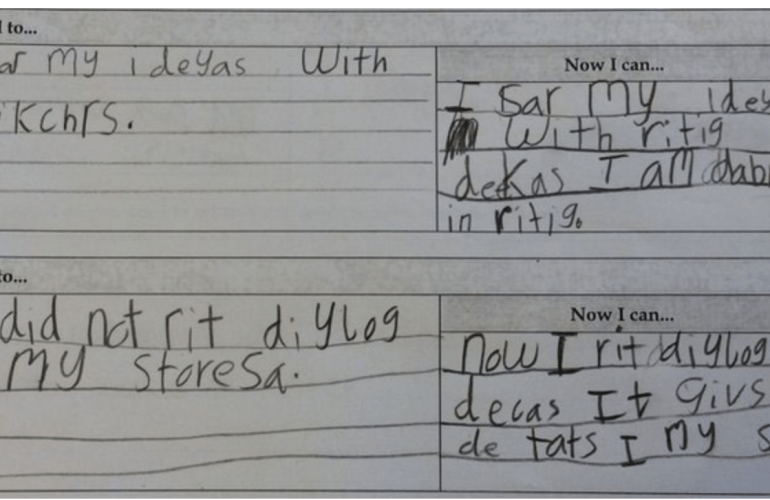 l to...
ar my ideyas With
Kchrs.
Now I can...
I Sar My idey
With ritig
dekas I am
in ritig.
to...
did not rit diylog
MY storesa.
Now I can...
now I rit diylog
decas It givs
de tats I My s